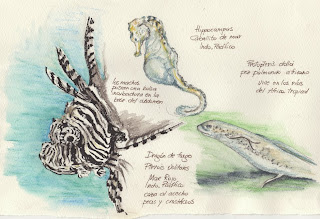 Hippocampus
Caballito de mar
Indo. Pacífico
Los machos
poseen una bolsa
incubadora en la
base del abdomen
Protopterus
pez pulmonado africano
vive en los ríos
del África tropical
Dragón de fuego
Pterois volitans
Mar Rojo
Indo. Pacífico
caza al acecho
peces y crustáceos